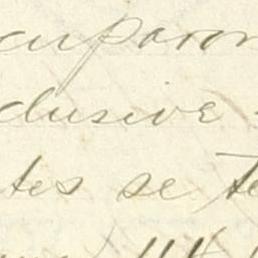 cuparon
clusive
tes se te